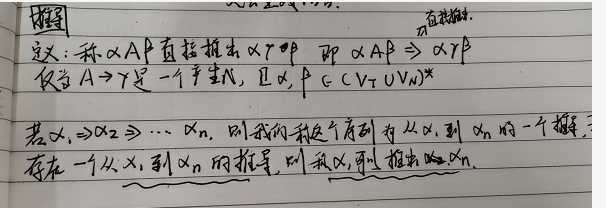 推导
可直接推出.
定义：称αAβ直接推出αγβ 即 αAβ ⇒ αγβ
仅当 A→γ是一个产生式, 且α, β ∈ (VT ∪ VN)*
若α₁⇒α2⇒… αn, 则我们称这个序列为从α₁到αn的一个推导,
存在一个从α₁到αn的推导, 则称α₁可以推出 αn.